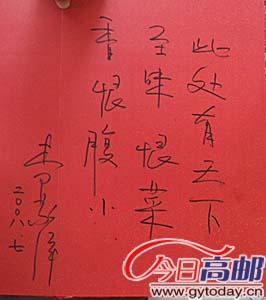 此处有天下
至味恨菜
香恨腹小
二〇〇八.七
今日高邮
www.gytoday.cn